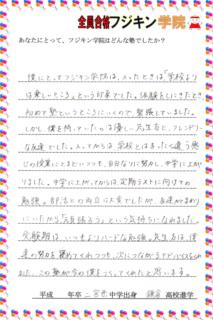 全員合格フジキン学院
あなたにとって、フジキン学院はどんな塾でしたか？
僕にとってフジキン学院は、入ったときは「学校より
は楽しいところ」という印象でした。体験をしにきたとき
初めて塾というところにいくので緊張していました。
しかし、僕を待っていたのは優しい先生方と、フレンドリー
な友達でした。入ってからは、学校とはまったく違う感
じの授業にとまどいつつも、自分なりに努力し、中学に上が
りました。中学に上がってからは、定期テストに向けての
勉強。部活との両立は大変でしたが、友達がまわり
にいたから「頑張ろう」という気持ちになれました。
受験期は、いつもよりハードな勉強。先生方は、僕
達の努力を褒めてくれつつも、次につながるアドバイスをくれ
ました。この塾が今の僕をつくってくれたと思います。
平成　年卒 二宮西 中学出身 鎌倉 高校進学